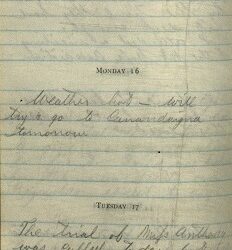 Monday 16
Weather hot – will
try & go to Canandaigua
tomorrow
Tuesday 17
The trial of Miss Anthony
was